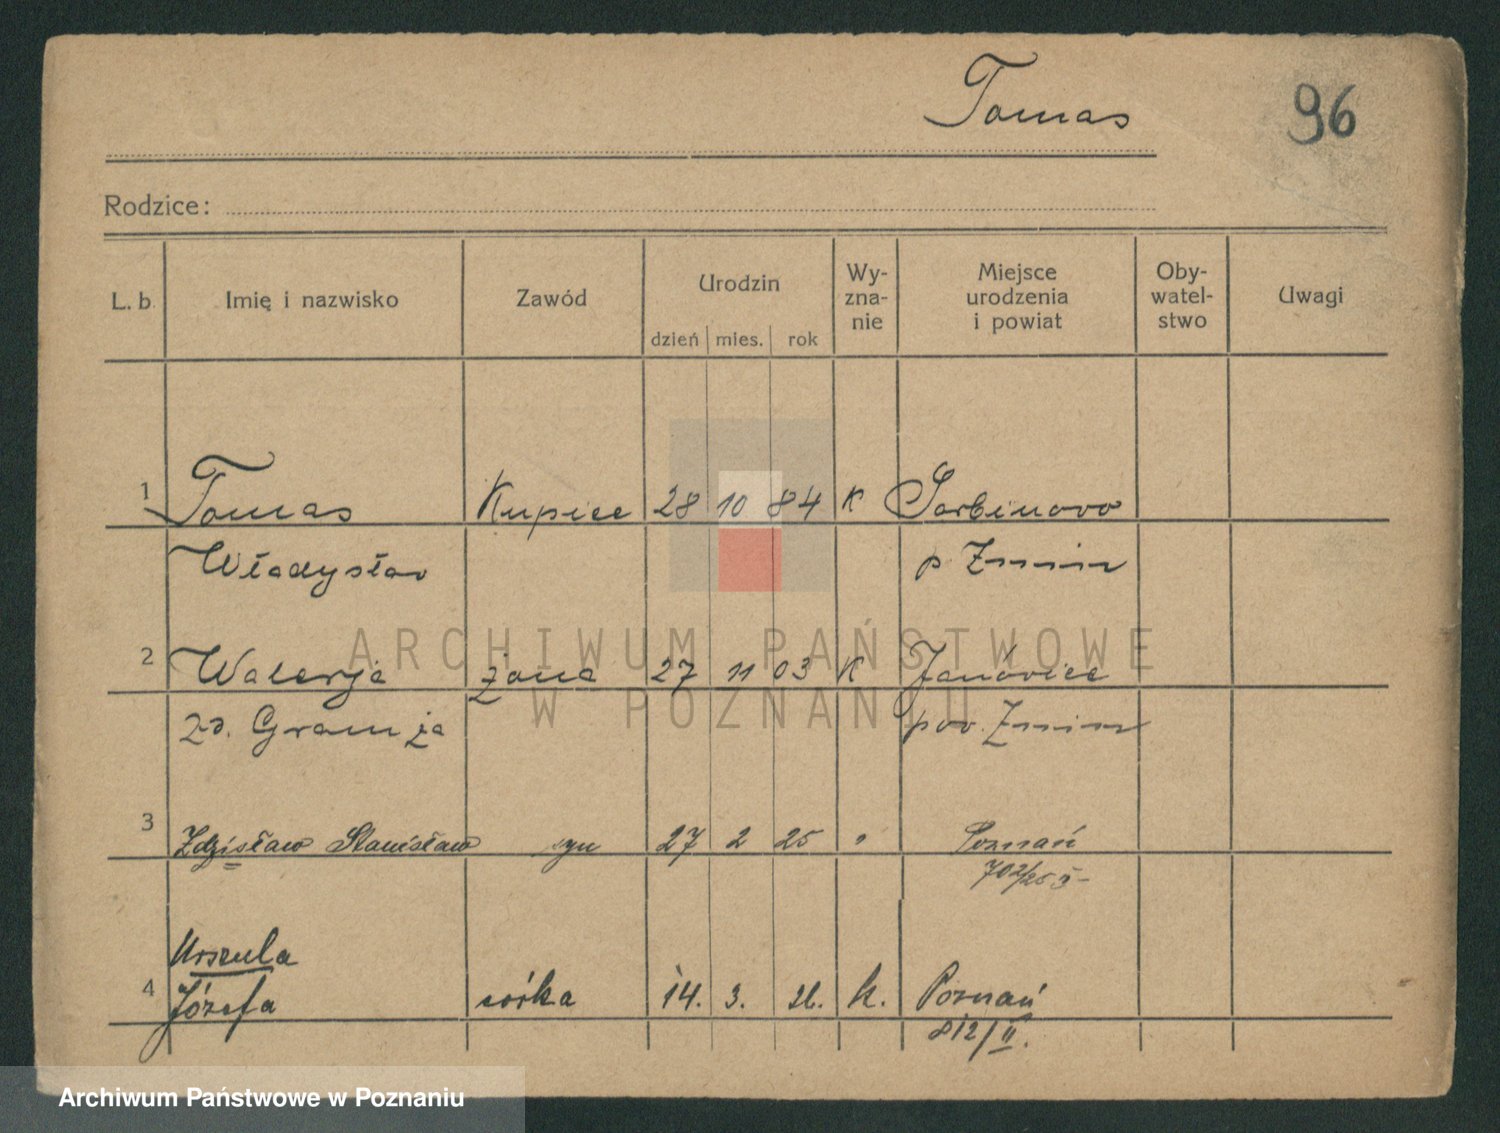 Tomas
96
Rodzice:
L. b. Imię i nazwisko Zawód Urodzin dzień mies. rok Wy-zna-nie Miejsce urodzenia i powiat Oby-watel-stwo Uwagi
1 Tomas Kupiec 28 10 84 K Sarbinowo
Władysław p. Żnin
2 Walerja żona 27 11 03 K Janówiec
zd. Gramza pow. Żnin
3 Zdzisław Stanisław syn 27 2 25 " Poznań
702/25
Urszula
4 Józefa córka 14. 3. 26. k. Poznań
812/II.
ARCHIWUM PAŃSTWOWE
W POZNANIU
Archiwum Państwowe w Poznaniu